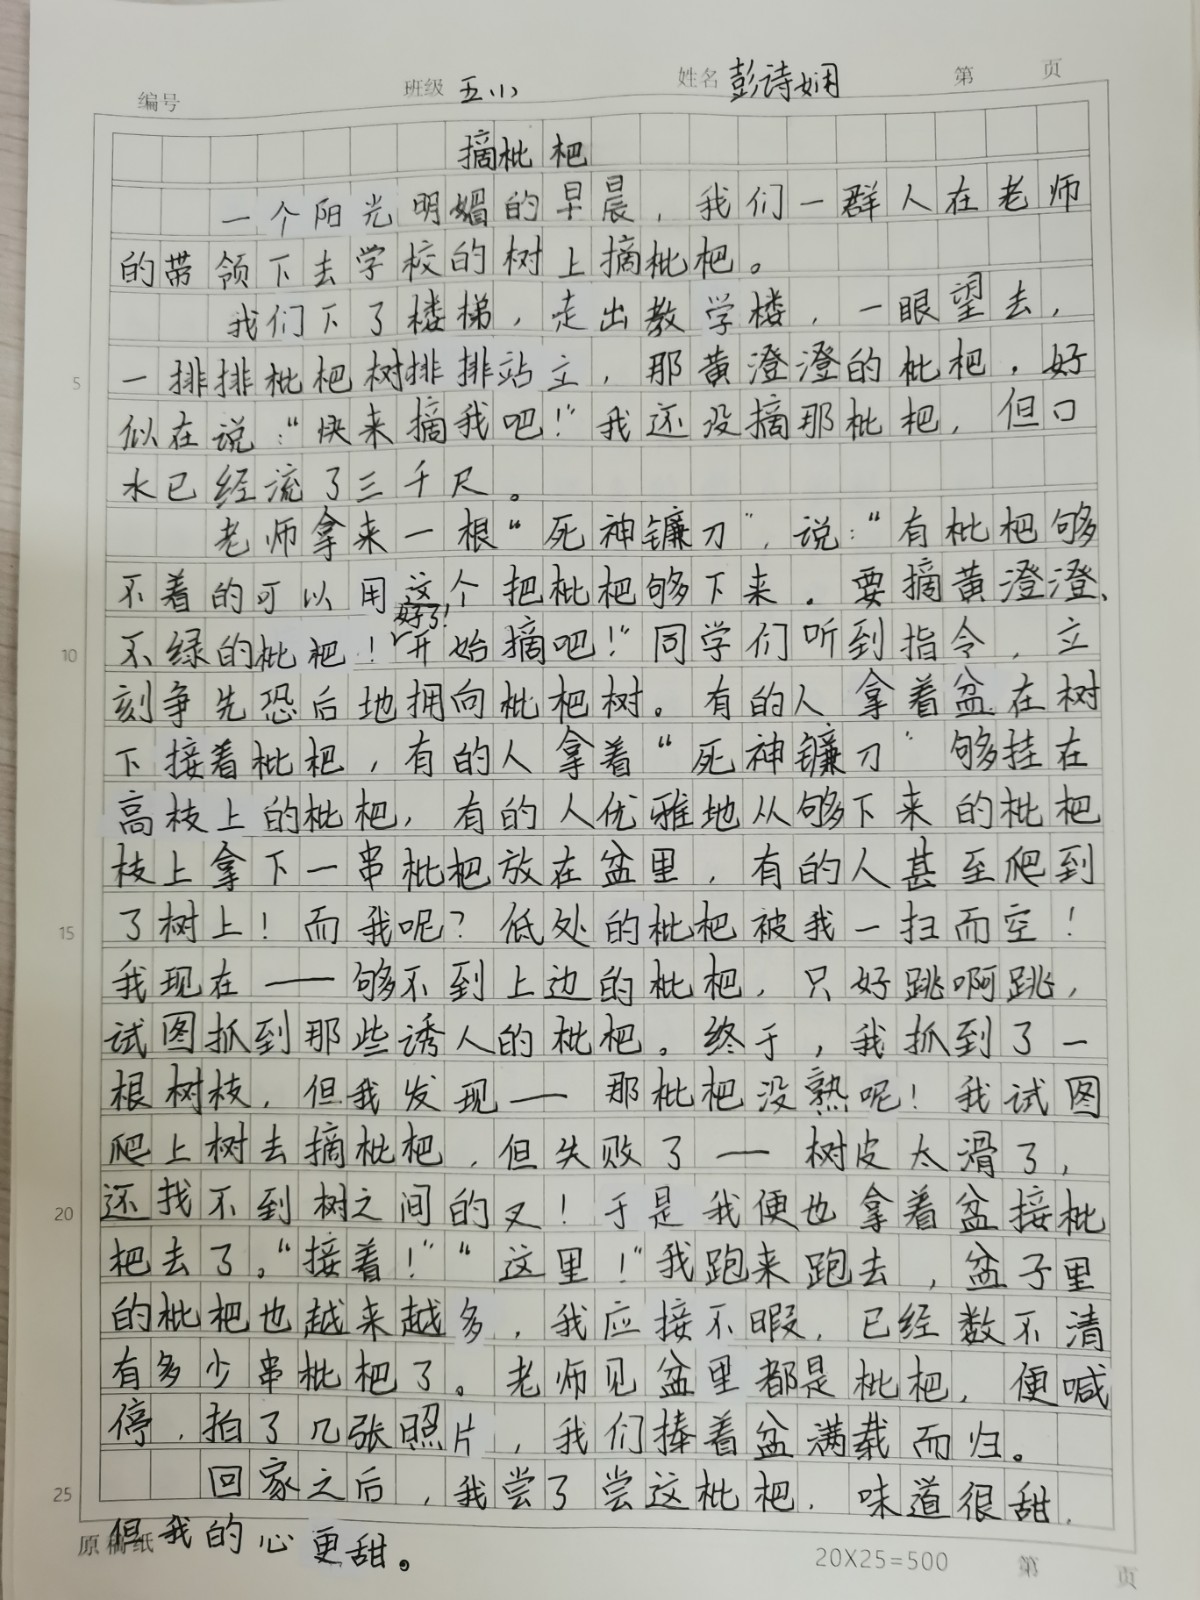 编号 班级 五小 姓名 彭诗娴 第 页
摘枇杷
一个阳光明媚的早晨，我们一群人在老师
的带领下去学校的树上摘枇杷。
我们下了楼梯，走出教学楼，一眼望去，
5 一排排枇杷树排排站立，那黄澄澄的枇杷，好
似在说：“快来摘我吧！”我还没摘那枇杷，但口
水已经流了三千尺。
老师拿来一根“死神镰刀”，说：“有枇杷够
不着的可以用这个把枇杷够下来。要摘黄澄澄、
好了！
10 不绿的枇杷！开始摘吧！”同学们听到指令，立
刻争先恐后地拥向枇杷树。有的人拿着盆在树
下接着枇杷，有的人拿着“死神镰刀”够挂在
高枝上的枇杷，有的人优雅地从够下来的枇杷
枝上拿下一串枇杷放在盆里，有的人甚至爬到
15 了树上！而我呢？低处的枇杷被我一扫而空！
我现在——够不到上边的枇杷，只好跳啊跳，
试图抓到那些诱人的枇杷。终于，我抓到了一
根树枝，但我发现——那枇杷没熟呢！我试图
爬上树去摘枇杷，但失败了——树皮太滑了，
20 还找不到树之间的叉！于是我便也拿着盆接枇
杷去了。“接着！”“这里！”我跑来跑去，盆子里
的枇杷也越来越多，我应接不暇，已经数不清
有多少串枇杷了。老师见盆里都是枇杷，便喊
停，拍了几张照片，我们捧着盆满载而归。
25 回家之后，我尝了尝这枇杷，味道很甜，
但我的心更甜。
原稿纸 20X25=500 第 页